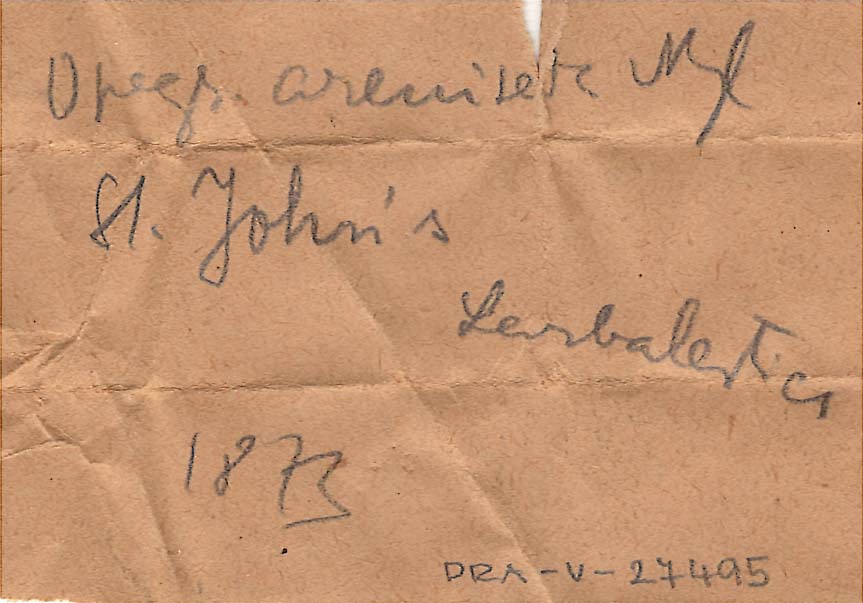 Opegr. areniseda Nyl
St. John's
Larbalestier
1873
DRA-V-27495